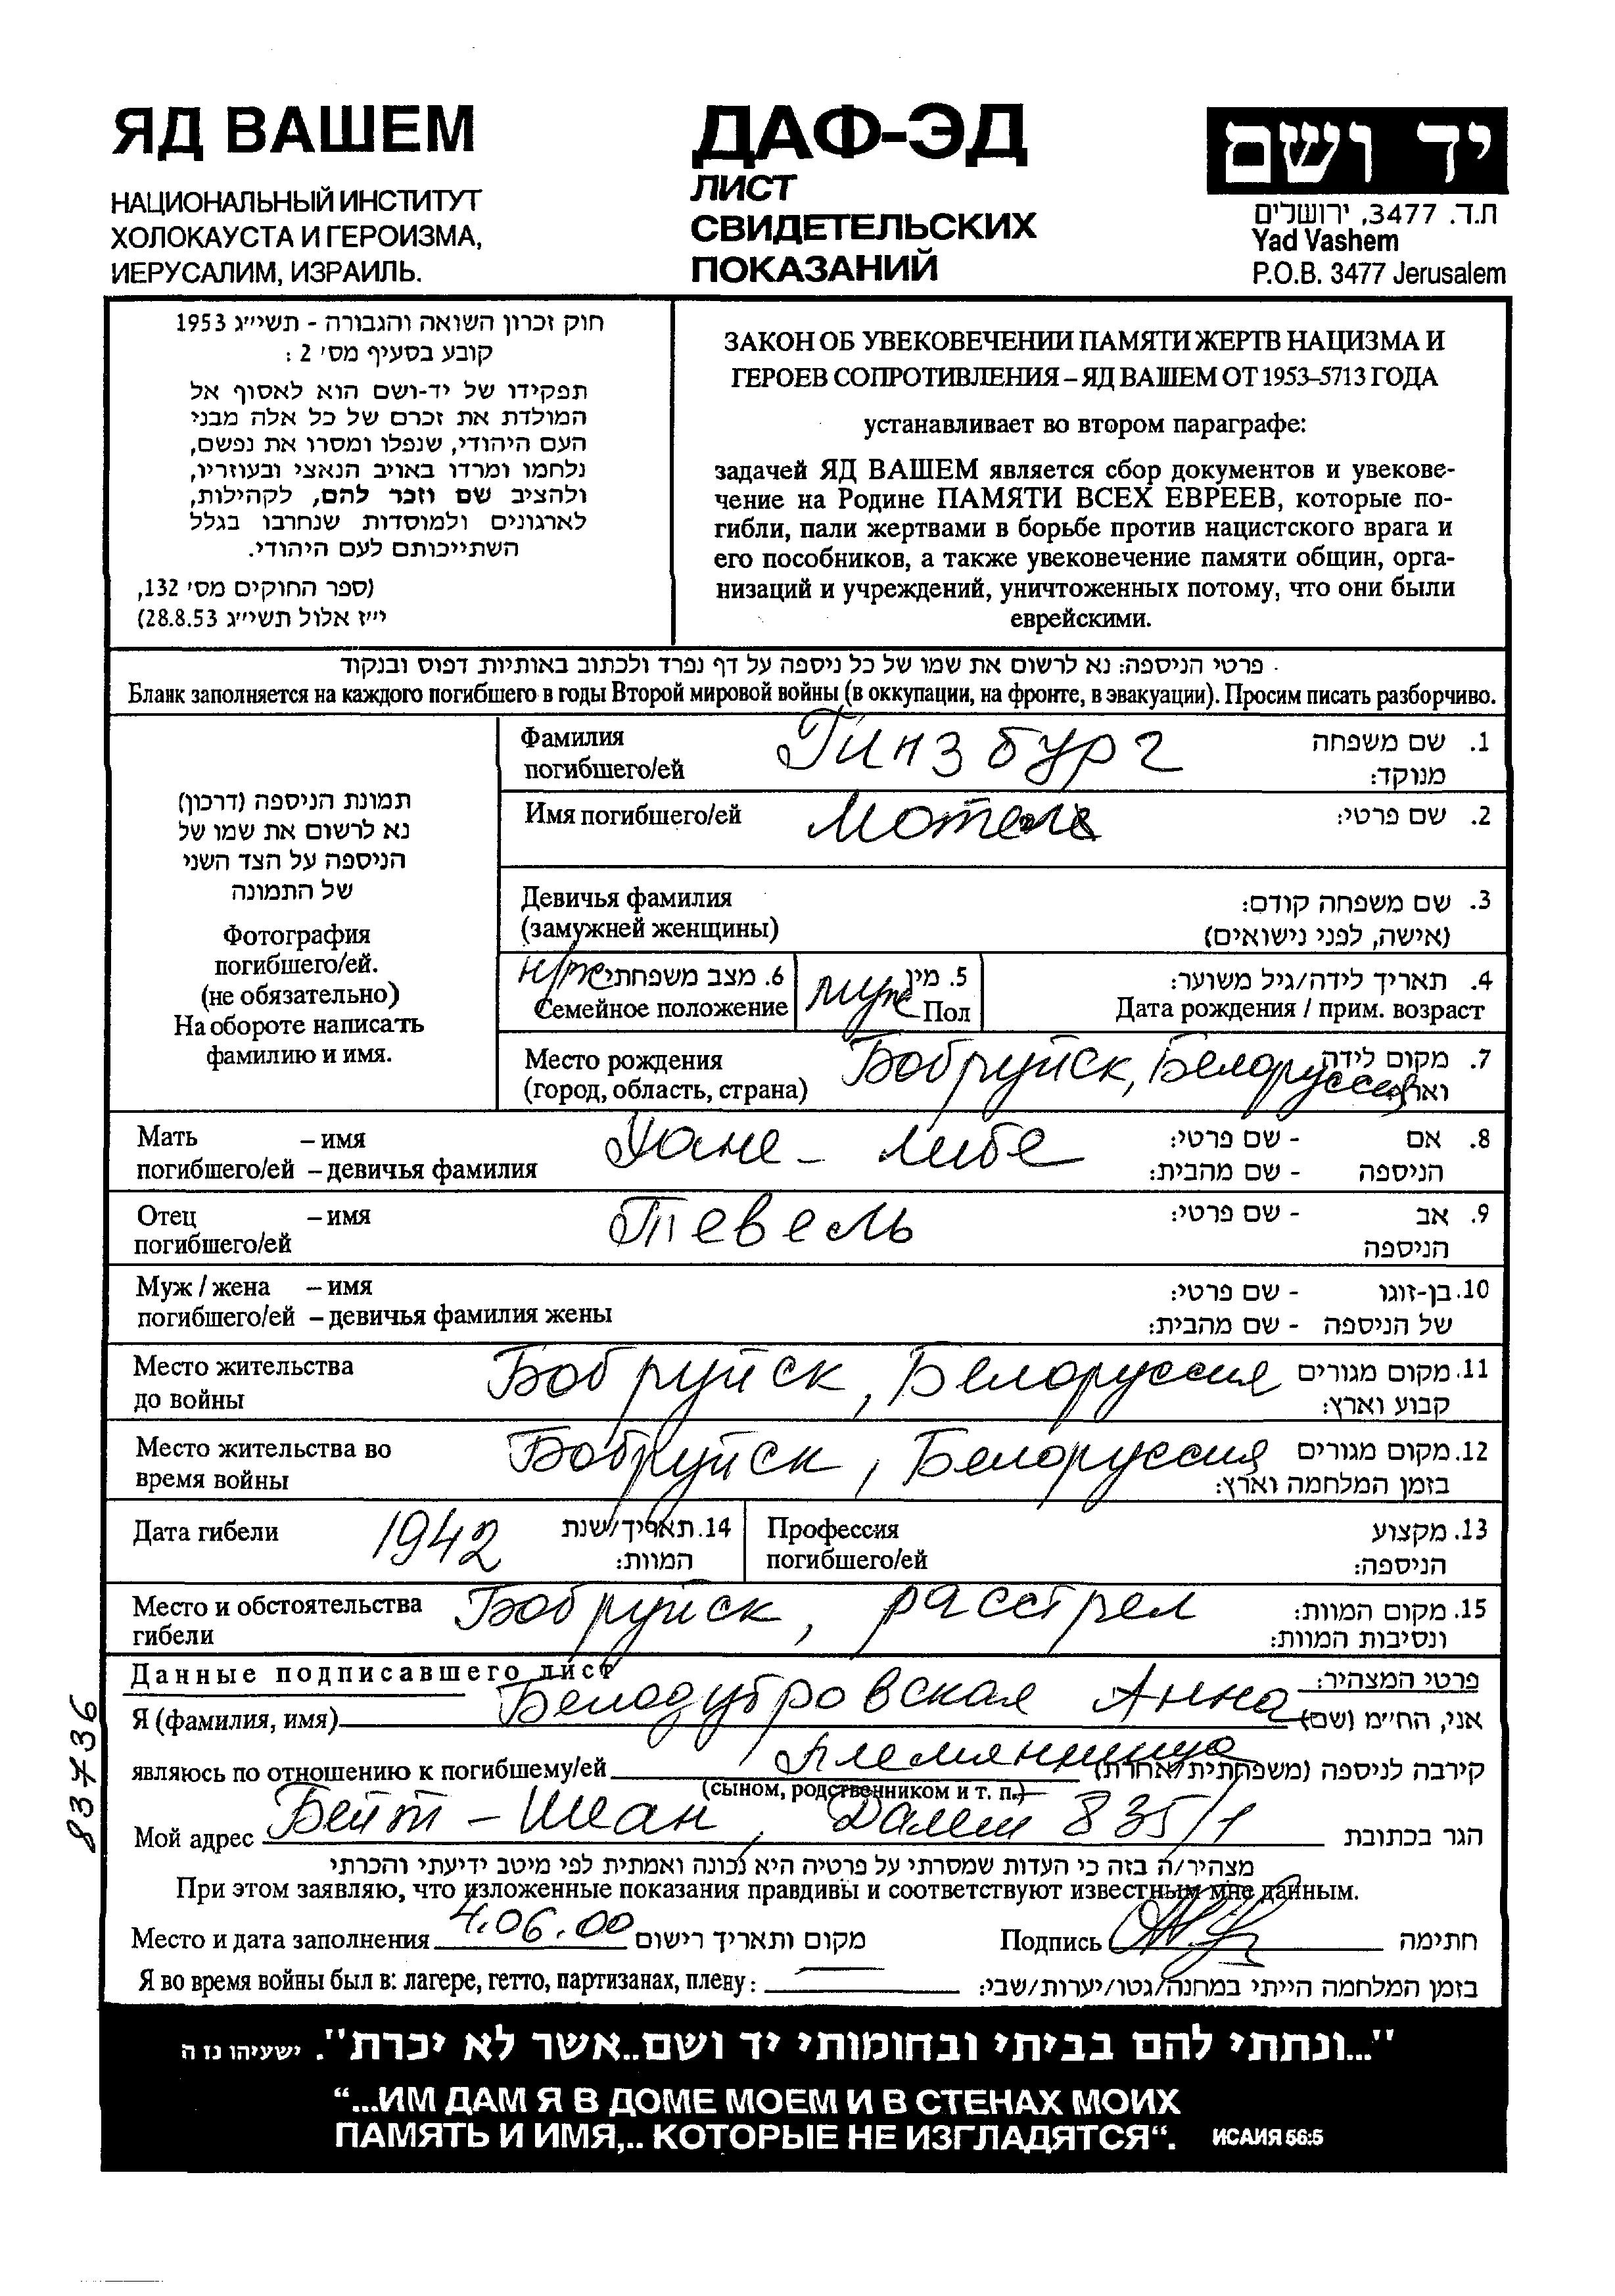 ЯД ВАШЕМ
НАЦИОНАЛЬНЫЙ ИНСТИТУТ
ХОЛОКАУСТА И ГЕРОИЗМА,
ИЕРУСАЛИМ, ИЗРАИЛЬ.
ДАФ-ЭД
ЛИСТ
СВИДЕТЕЛЬСКИХ
ПОКАЗАНИЙ
יד ושם
ת.ד. 3477, ירושלים
Yad Vashem
P.O.B. 3477 Jerusalem
חוק זכרון השואה והגבורה - תשי״ג 1953
קובע בסעיף מס׳ 2 :
תפקידו של יד-ושם הוא לאסוף אל
המולדת את זכרם של כל אלה מבני
העם היהודי, שנפלו ומסרו את נפשם,
נלחמו ומרדו באויב הנאצי ובעוזריו,
ולהציב שם וזכר להם, לקהילות,
לארגונים ולמוסדות שנחרבו בגלל
השתייכותם לעם היהודי.
(ספר החוקים מס׳ 132,
י״ז אלול תשי״ג 28.8.53)
ЗАКОН ОБ УВЕКОВЕЧЕНИИ ПАМЯТИ ЖЕРТВ НАЦИЗМА И
ГЕРОЕВ СОПРОТИВЛЕНИЯ – ЯД ВАШЕМ ОТ 1953–5713 ГОДА
устанавливает во втором параграфе:
задачей ЯД ВАШЕМ является сбор документов и увекове-
чение на Родине ПАМЯТИ ВСЕХ ЕВРЕЕВ, которые по-
гибли, пали жертвами в борьбе против нацистского врага и
его пособников, а также увековечение памяти общин, орга-
низаций и учреждений, уничтоженных потому, что они были
еврейскими.
פרטי הניספה: נא לרשום את שמו של כל ניספה על דף נפרד ולכתוב באותיות דפוס ובנקוד
Бланк заполняется на каждого погибшего в годы Второй мировой войны (в оккупации, на фронте, в эвакуации). Просим писать разборчиво.
תמונת הניספה (דרכון)
נא לרשום את שמו של
הניספה על הצד השני
של התמונה
Фотография
погибшего/ей.
(не обязательно)
На обороте написать
фамилию и имя.
Фамилия Гинзбург 1. שם משפחה
погибшего/ей מנוקד:
Имя погибшего/ей Мотель 2. שם פרטי:
Девичья фамилия 3. שם משפחה קודם:
(замужней женщины) (אישה, לפני נישואים)
6. מצב משפחתי 5. מין 4. תאריך לידה/גיל משוער:
Семейное положение муж Пол Дата рождения / прим. возраст
Место рождения Бобруйск, Белоруссия 7. מקום לידה
(город, область, страна) וארץ
Мать – имя Хане - Либе 8. אם - שם פרטי:
погибшего/ей – девичья фамилия הניספה - שם מהבית:
Отец – имя Тевель 9. אב - שם פרטי:
погибшего/ей הניספה
Муж / жена – имя 10. בן-זוגו - שם פרטי:
погибшего/ей – девичья фамилия жены של הניספה - שם מהבית:
Место жительства Бобруйск, Белоруссия 11. מקום מגורים
до войны קבוע וארץ:
Место жительства во Бобруйск, Белоруссия 12. מקום מגורים
время войны בזמן המלחמה וארץ:
Дата гибели 1942 14. תאריך/שנת Профессия 13. מקצוע
המוות: погибшего/ей הניספה:
Место и обстоятельства Бобруйск, расстрел 15. מקום המוות:
гибели ונסיבות המוות:
Данные подписавшего лист פרטי המצהיר:
Я (фамилия, имя) Белодубровская Анна אני, הח״מ (שם)
являюсь по отношению к погибшему/ей племянница קירבה לניספה (משפחתית/אחרת)
(сыном, родственником и т. п.)
Мой адрес Бейт - Шеан, Далет 835/1 הגר בכתובת
מצהיר/ה בזה כי העדות שמסרתי על פרטיה היא נכונה ואמתית לפי מיטב ידיעתי והכרתי
При этом заявляю, что изложенные показания правдивы и соответствуют известным мне данным.
Место и дата заполнения 4.06.00 מקום ותאריך רישום Подпись חתימה
Я во время войны был в: лагере, гетто, партизанах, плену: בזמן המלחמה הייתי במחנה/גטו/יערות/שבי:
83736
"...ונתתי להם בביתי ובחומותי יד ושם..אשר לא יכרת". ישעיהו נו ה
“...ИМ ДАМ Я В ДОМЕ МОЕМ И В СТЕНАХ МОИХ
ПАМЯТЬ И ИМЯ,.. КОТОРЫЕ НЕ ИЗГЛАДЯТСЯ“. ИСАИЯ 56:5